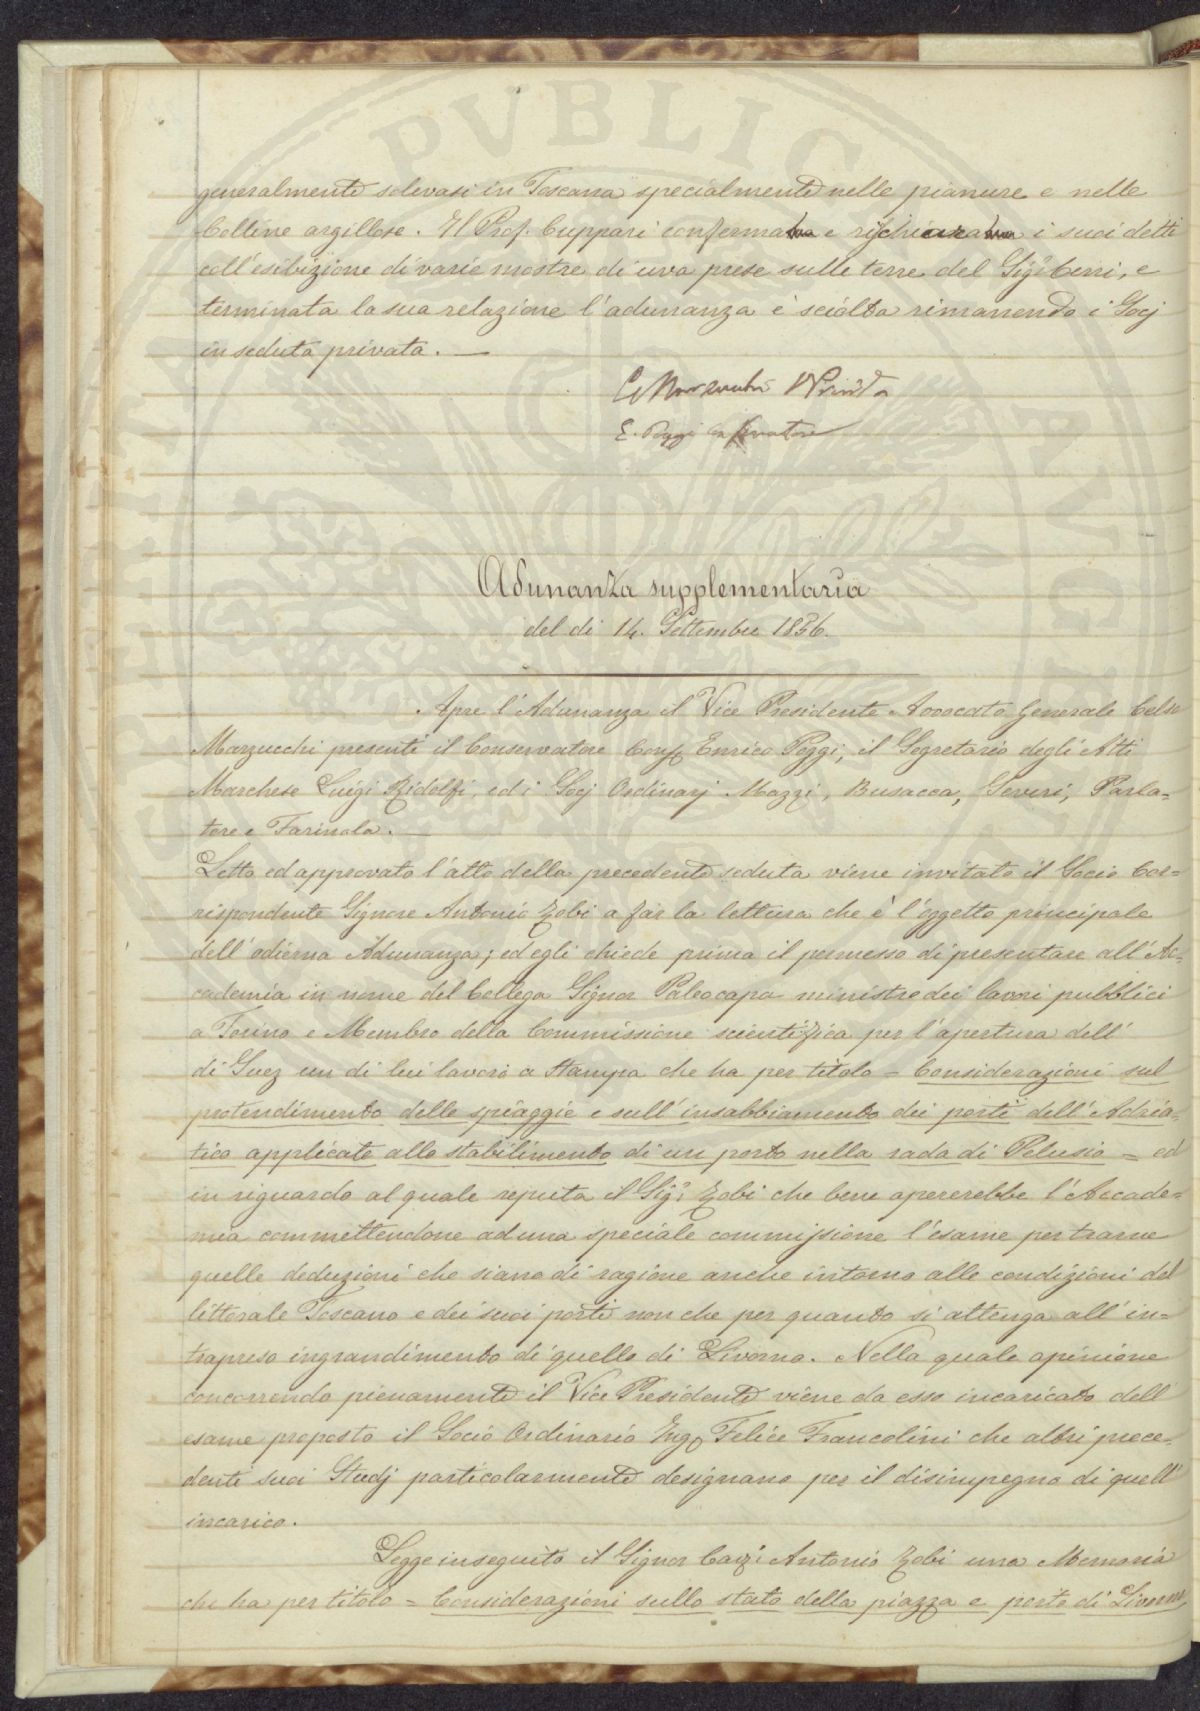 generalmente solevasi in Toscana specialmente nelle pianure e nelle
Colline argillose. Il Prof. Cuppari conferma e rischiara i suoi detti
coll'esibizione di varie mostre di uva prese sulle terre del Sigr. Cerri, e
terminata la sua relazione l'adunanza è sciolta rimanendo i Socj
in seduta privata. —
E. Poggi Conservatore
Adunanza supplementaria
del dì 14. Settembre 1856.
Apre l'Adunanza il Vice Presidente Avvocato Generale Celso
Marzucchi presenti il Conservatore Consr Enrico Poggi, il Segretario degli Atti
Marchese Luigi Ridolfi, ed i Socj Ordinarj Mazzi, Busacca, Severi, Parla=
tore e Farinola. —
Letto ed approvato l'atto della precedente seduta viene invitato il Socio Cor=
rispondente Signore Antonio Zobi a far la lettura che è l'oggetto principale
dell'odierna Adunanza; ed egli chiede prima il permesso di presentare all'Ac=
cademia in nome del Collega Signor Paleocapa ministro dei lavori pubblici
a Torino e Membro della Commissione scientifica per l'apertura dell'
di Suez un di lui lavoro a stampa che ha per titolo = Considerazioni sul
protendimento delle spiaggie e sull'insabbiamento dei porti dell'Adria=
tico applicate allo stabilimento di un porto nella rada di Pelusio = ed
in riguardo al quale reputa il Sigr. Zobi che bene opererebbe l'Accade=
mia commettendone ad una speciale commissione l'esame per trarne
quelle deduzioni che siano di ragione anche intorno alle condizioni del
littorale Toscano e dei suoi porti non che per quanto si attenga all'in=
trapreso ingrandimento di quello di Livorno. Nella quale opinione
concorrendo pienamente il Vice Presidente viene da esso incaricato dell'
esame proposto il Socio Ordinario Inge Felice Francolini che altri prece=
denti suoi Studj particolarmente designano per il disimpegno di quell'
incarico.
Legge in seguito il Signor Cav. Antonio Zobi una Memoria
che ha per titolo = Considerazioni sullo stato della piazza e porto di Livorno,